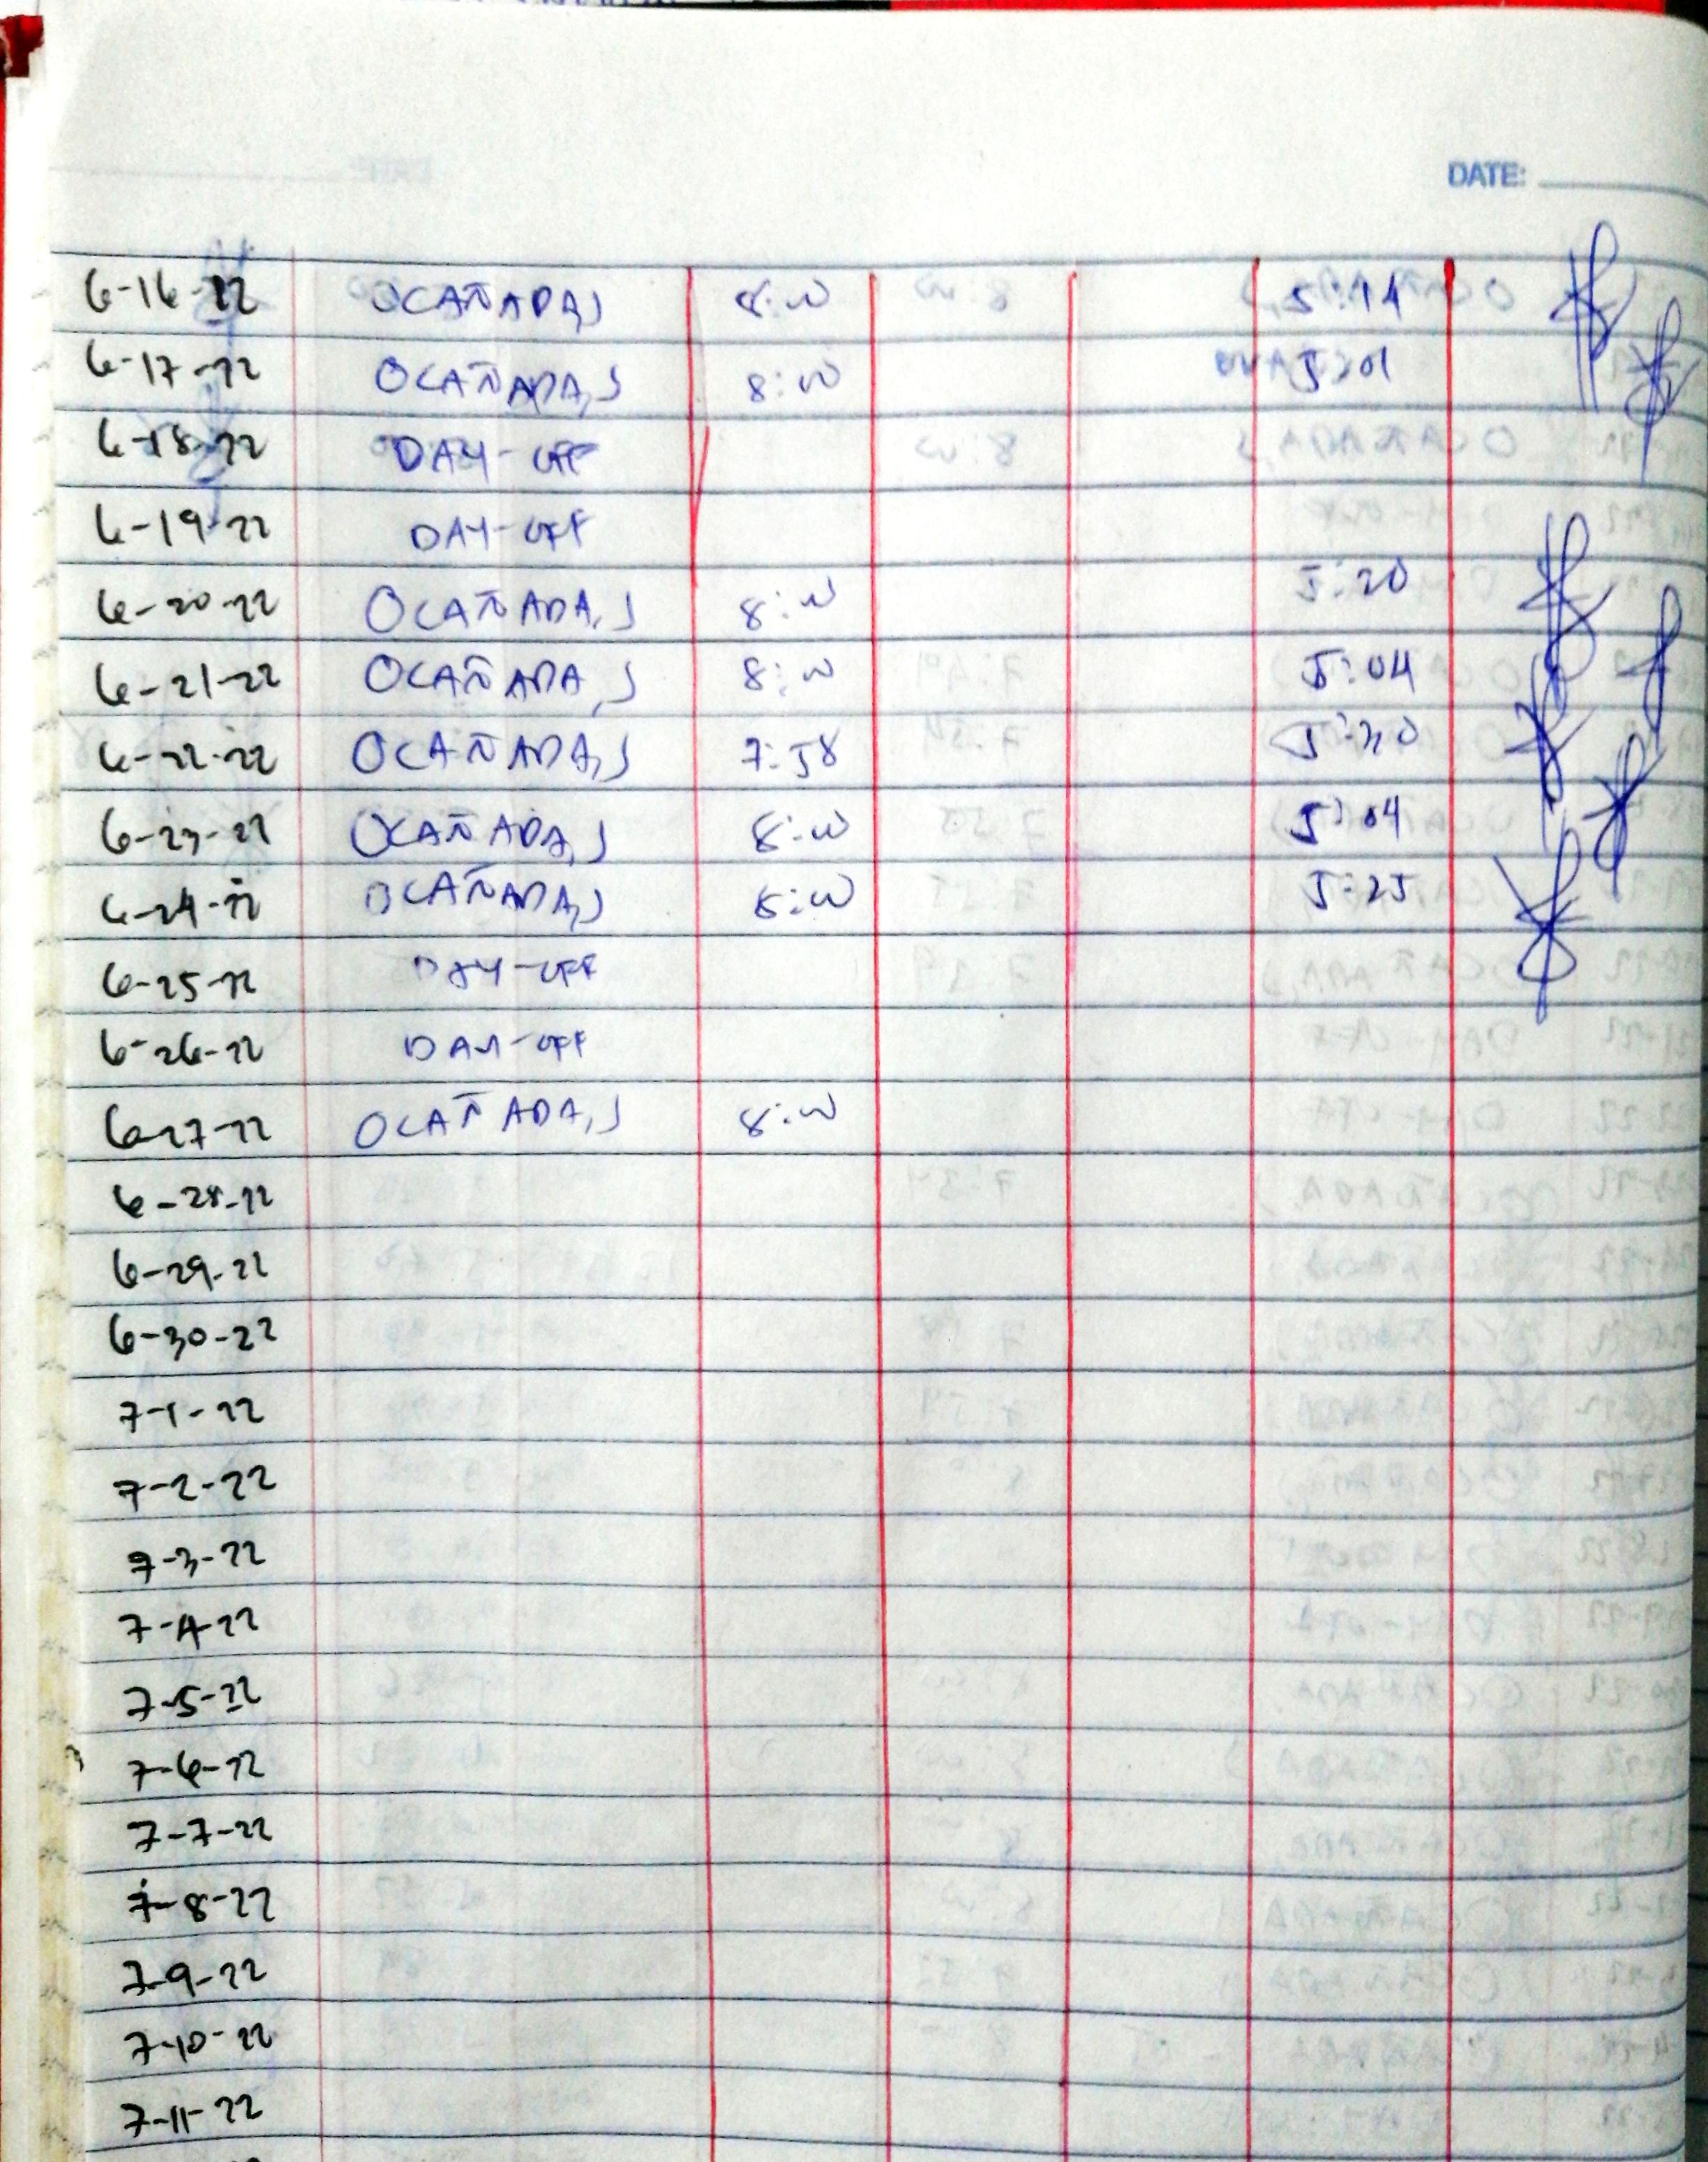 DATE:
6-16-22 OCAÑADA,J 8:00 5:14
6-17-22 OCAÑADA,J 8:00 5:01
6-18-22 DAY-OFF
6-19-22 DAY-OFF
6-20-22 OCAÑADA,J 8:00 5:20
6-21-22 OCAÑADA,J 8:00 5:04
6-22-22 OCAÑADA,J 7:58
6-23-22 OCAÑADA,J 8:00 5:04
6-24-22 OCAÑADA,J 8:00 5:25
6-25-22 DAY-OFF
6-26-22 DAY-OFF
6-27-22 OCAÑADA,J 8:00
6-28-22
6-29-22
6-30-22
7-1-22
7-2-22
7-3-22
7-4-22
7-5-22
7-6-22
7-7-22
7-8-22
7-9-22
7-10-22
7-11-22